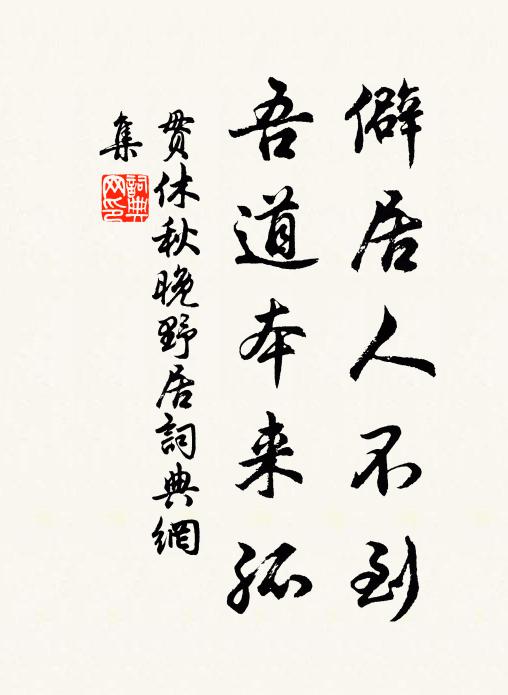 僻居人不到
吾道本来孤
贯休秋晚野居詞典網
集
詞典网印